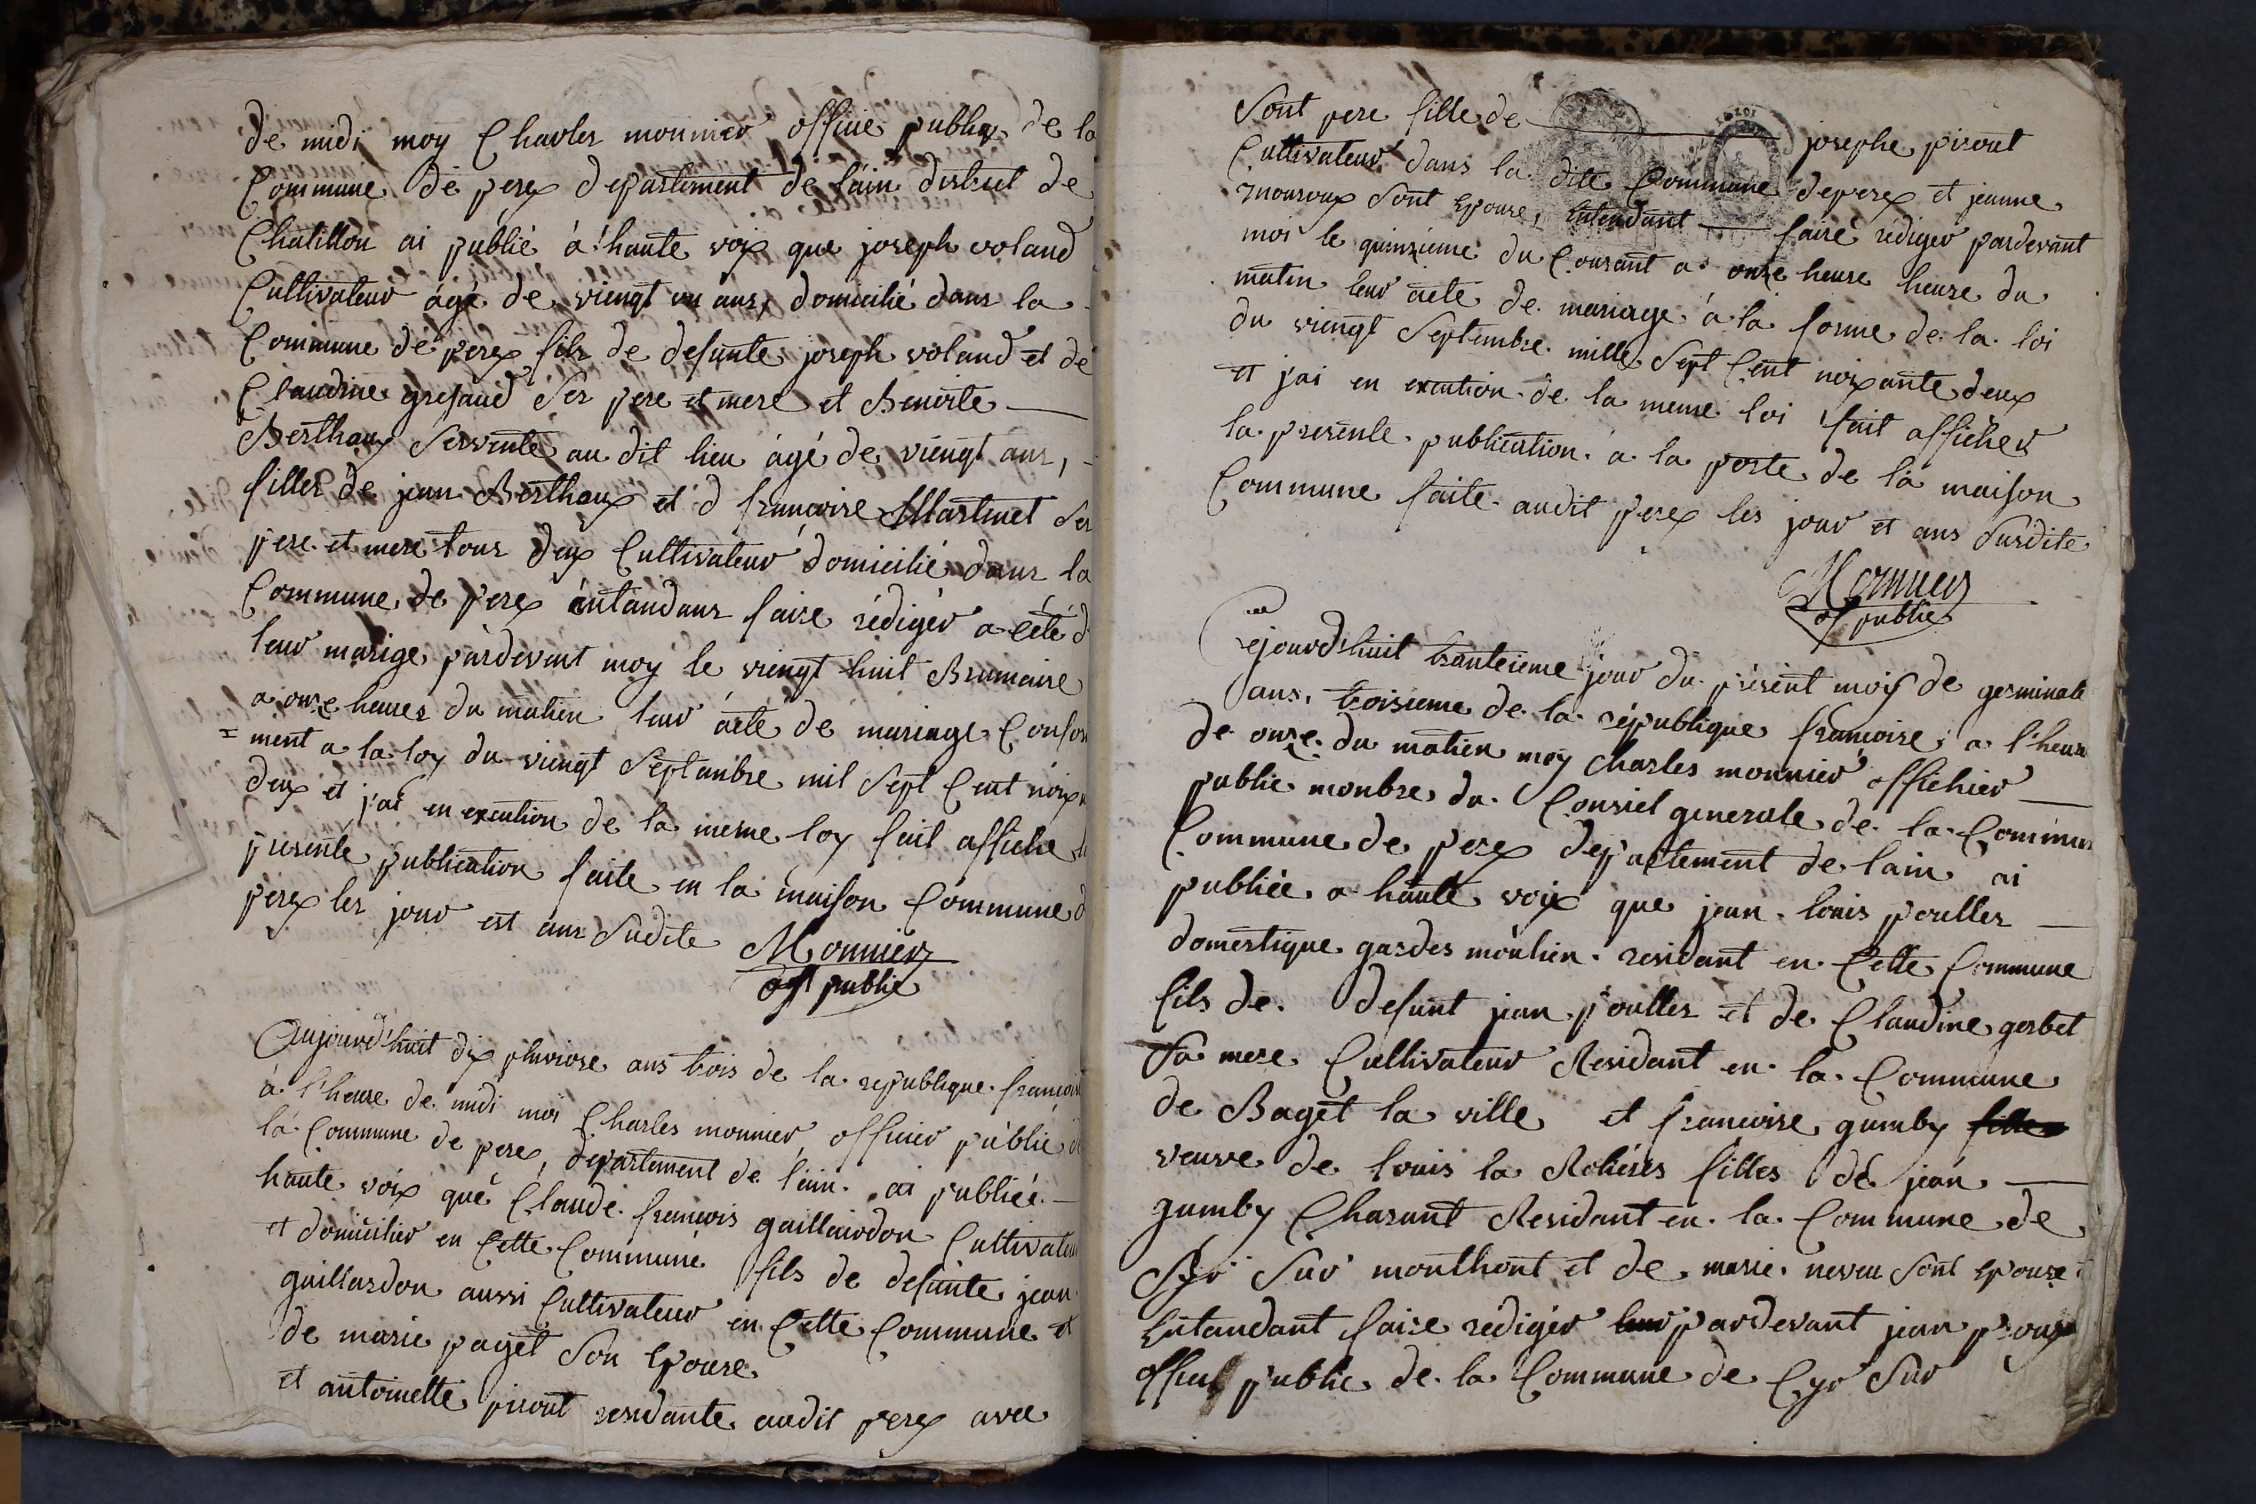 de midi moy Charles monnier officié publiq de la
Commune de perex departiment de lain district de
Chatillon ai publié a haute voix que joseph voland
Cultivateur âgé de viengt un ans, domicilié dans la
Commune de perex fils de defunte joseph voland et de
Claudine grefaud Ses pere et mere et Benoite
Berthaux Servente au dit lieu âgé de viengt ans,
filles de jean Berthaux et d françoise Martinet Ses
pere et mere tous deux Cultivateur domicilié dans la
Commune de perex entandans faire rédigér acété d
leur marige pardevent moy le viengt huit Brumaire
a onze heures du matien leur acte de mariage Confor
= ment a la loy du viengt Septanbre mil Sept Cent noix
deux et j'ai en excution de la meme loy fait affiche
presente publication faite en la maison Commune d
perex les jour est ans Sudite Monnier
off public
Aujourdhuit dix pluviose ans trois de la republique françois
à l'heure de midi moi Charles monnier officier public d
la Commune de perex, departement de lain ai publiéé
haute voix que Claude françois gaillardon Cultivateur
et domicilier en Cette Commune fils de defunte jean
guillardon aussi Cultivateur en Cette Commune et
de marie paget Son Epouse
et antoinette piront residante audit perex avec
Sont pere fille de josephe piront
Cultivateur dans la dite Commune deperex et jeanne
Sont Epouse, Entendant faire rédiger pardevant
moi le quinzieme du Courant a onze heure heure du
matin leur acte de mariage à la forme de la loi
du viengt Septembre mille Sept Cent noixante deux
et jai en excution de la meme loi fait afficher
la presente publication a la porte de la maison
Commune faite audit perex les jour et ans Susdite
Monnier
of public
Cejourdhuit tranteieme jour du présent mois de germinale
ans troisieme de la république francoise a l'heure
de onze du matien moy Charles monnier offichier
public monbre du Consiel generale de la Commun
Commune de perex departement de lain ai
publiée a haute voix que jean louis poulles
domestique gardes moulien residant en Cette Commune
fils de defunt jean poulles et de Claudine gerbet
Sa mere Cultivateur Residant en la Commune
de Baget la ville et francoise gumby fille
veuve de louis la Rolieres filles de jean
gumby Charant Residant en la Commune de
Sur monthont et de marie neveu Sont Epouse
Entandant faire rédigér leur pardevant jean
officié public de la Commune de Cyr Sur